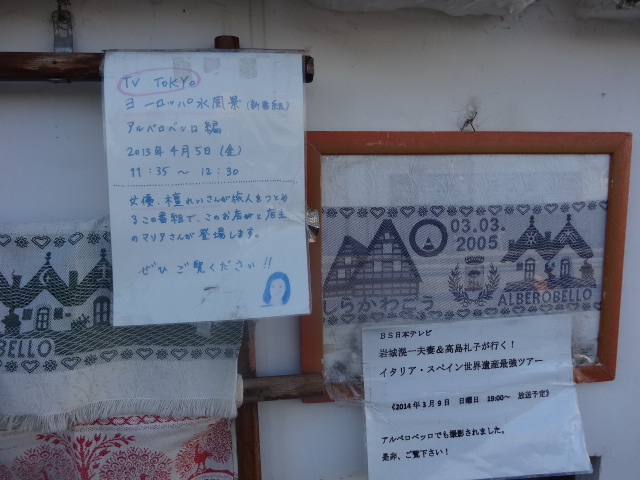 TV TOKYO
ヨーロッパ水風景(新番組)
アルベロベッロ編
2013年4月5日(金)
11:35 ～ 12:30
女優、檀れいさんが旅人をつとめ
るこの番組で、このお店がと店主
のマリアさんが登場します。
ぜひ ご覧ください!!
03.03.
2005
しらかわごう
ALBEROBELLO
OBELLO
BS日本テレビ
岩城滉一夫妻&高島礼子が行く!
イタリア・スペイン世界遺産最強ツアー
《2014年3月9日 日曜日 19:00～ 放送予定》
アルベロベッロでも撮影されました。
是非、ご覧下さい!